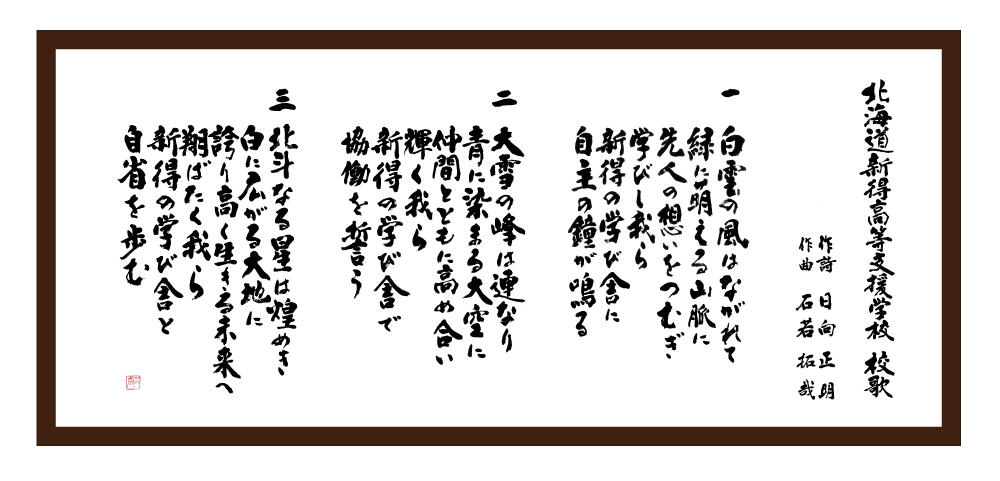 北海道新得高等支援学校 校歌
作詩 日向正明
作曲 石若拓哉
一
白雲の風はながれて
緑に萌える山脈に
先人の想いをつむぎ
学びし我ら
新得の学び舎に
自主の鐘が鳴る
二
大雪の峰は連なり
青に染まる大空に
仲間とともに高め合い
輝く我ら
新得の学び舎で
協働を誓う
三
北斗なる星は煌めき
白に広がる大地に
誇り高く生きる未来へ
翔ばたく我ら
新得の学び舎と
自省を歩む